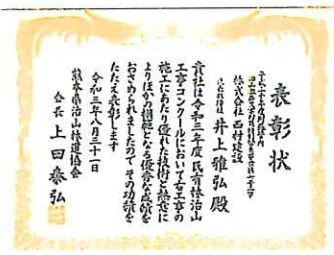 表彰状
株式会社 西村建設
代表取締役 井上雅弘 殿
貴社は令和三年度民有林治山
工事コンクールにおいて右工事の
施工にあたり優れた技術と熱意に
よりほかの模範となる優秀な成績を
おさめられましたのでその功績を
たたえ表彰します
令和三年八月三十一日
熊本県治山林道協会
会長 上田泰弘